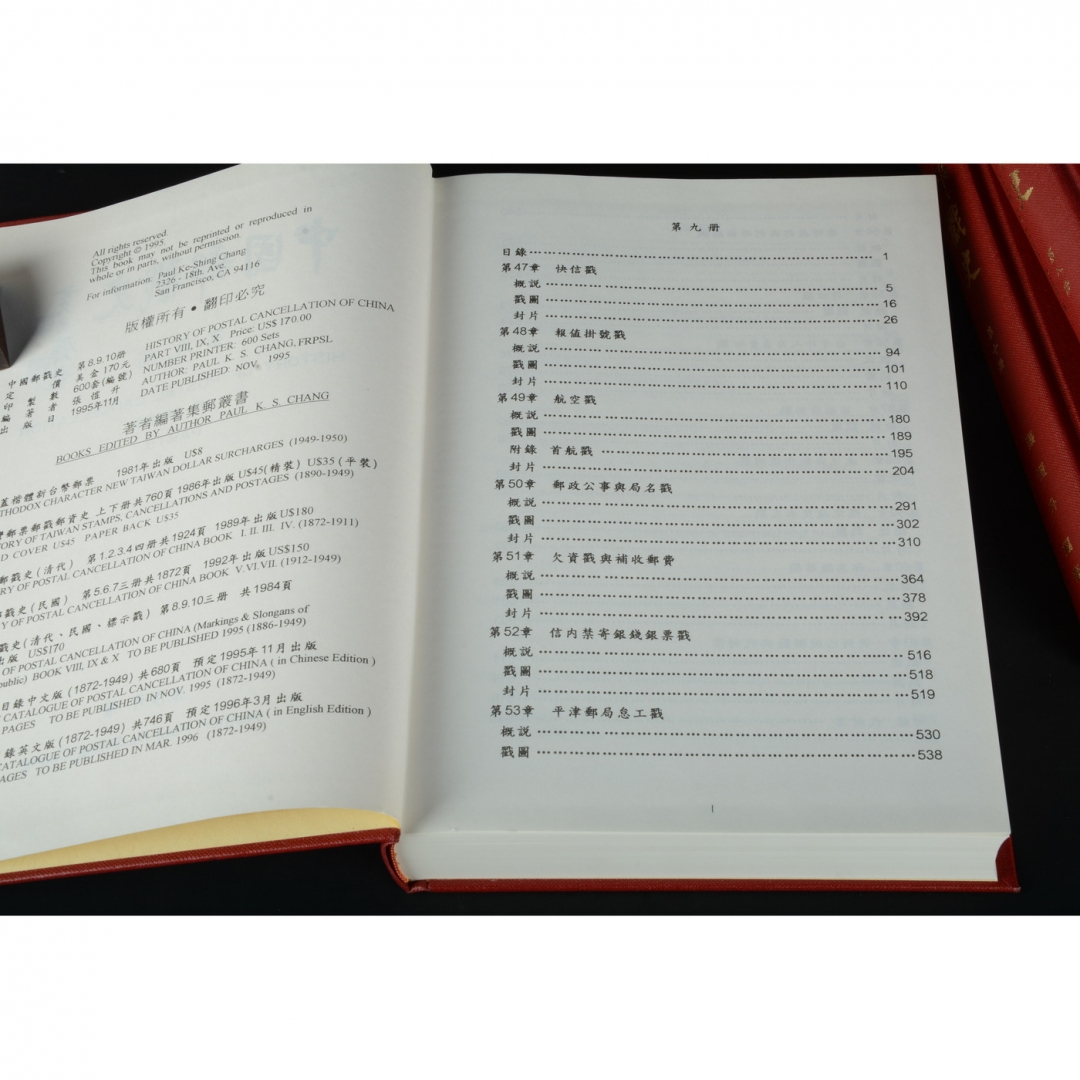 All rights reserved.
Copyright © 1995.
This book may not be reprinted or reproduced in
whole or in parts, without permission.
For information: Paul Ke-Shing Chang
2326 - 18th. Ave.
San Francisco, CA 94116
版權所有・翻印必究
中國郵戳史 第8.9.10册 HISTORY OF POSTAL CANCELLATION OF CHINA
PART VIII, IX, X Price: US$ 170.00
定價 美金170元 NUMBER PRINTER: 600 Sets
印製數 600套(編號) AUTHOR: PAUL K. S. CHANG, FRPSL
編著者 張愷升 DATE PUBLISHED: NOV, 1995
出版日 1995年11月
著者編著集郵叢書
BOOKS EDITED BY AUTHOR PAUL K. S. CHANG
蓋楷體新台幣郵票 1981年出版 US$8
THODOX CHARACTER NEW TAIWAN DOLLAR SURCHARGES (1949-1950)
郵票郵戳郵資史 上下册共760頁 1986年出版 US$45(精裝) US$35(平裝)
ORY OF TAIWAN STAMPS, CANCELLATIONS AND POSTAGES (1890-1949)
D COVER US$45 PAPER BACK US$35
郵戳史(清代) 第1.2.3.4四册共1924頁 1989年出版 US$180
RY OF POSTAL CANCELLATION OF CHINA BOOK I. II. III. IV. (1872-1911)
戳史(民國) 第5.6.7三册共1872頁 1992年出版 US$150
Y OF POSTAL CANCELLATION OF CHINA BOOK V.VI.VII. (1912-1949)
戳史(清代、民國、標示戳) 第8.9.10三册 共1984頁
出版 US$170
OF POSTAL CANCELLATION OF CHINA (Markings & Slongans of
public) BOOK VIII, IX & X TO BE PUBLISHED 1995 (1886-1949)
目錄中文版(1872-1949)共680頁 預定1995年11月出版
CATALOGUE OF POSTAL CANCELLATION OF CHINA ( in Chinese Edition )
PAGES TO BE PUBLISHED IN NOV. 1995 (1872-1949)
錄英文版(1872-1949)共746頁 預定1996年3月出版
CATALOGUE OF POSTAL CANCELLATION OF CHINA ( in English Edition )
AGES TO BE PUBLISHED IN MAR. 1996 (1872-1949)
第九册
目錄 1
第47章 快信戳
概説 5
戳圖 16
封片 26
第48章 報値掛號戳
概説 94
戳圖 101
封片 110
第49章 航空戳
概説 180
戳圖 189
附錄 首航戳 195
封片 204
第50章 郵政公事與局名戳
概説 291
戳圖 302
封片 310
第51章 欠資戳與補收郵費
概説 364
戳圖 378
封片 392
第52章 信内禁寄銀錢銀票戳
概説 516
戳圖 518
封片 519
第53章 平津郵局怠工戳
概説 530
戳圖 538